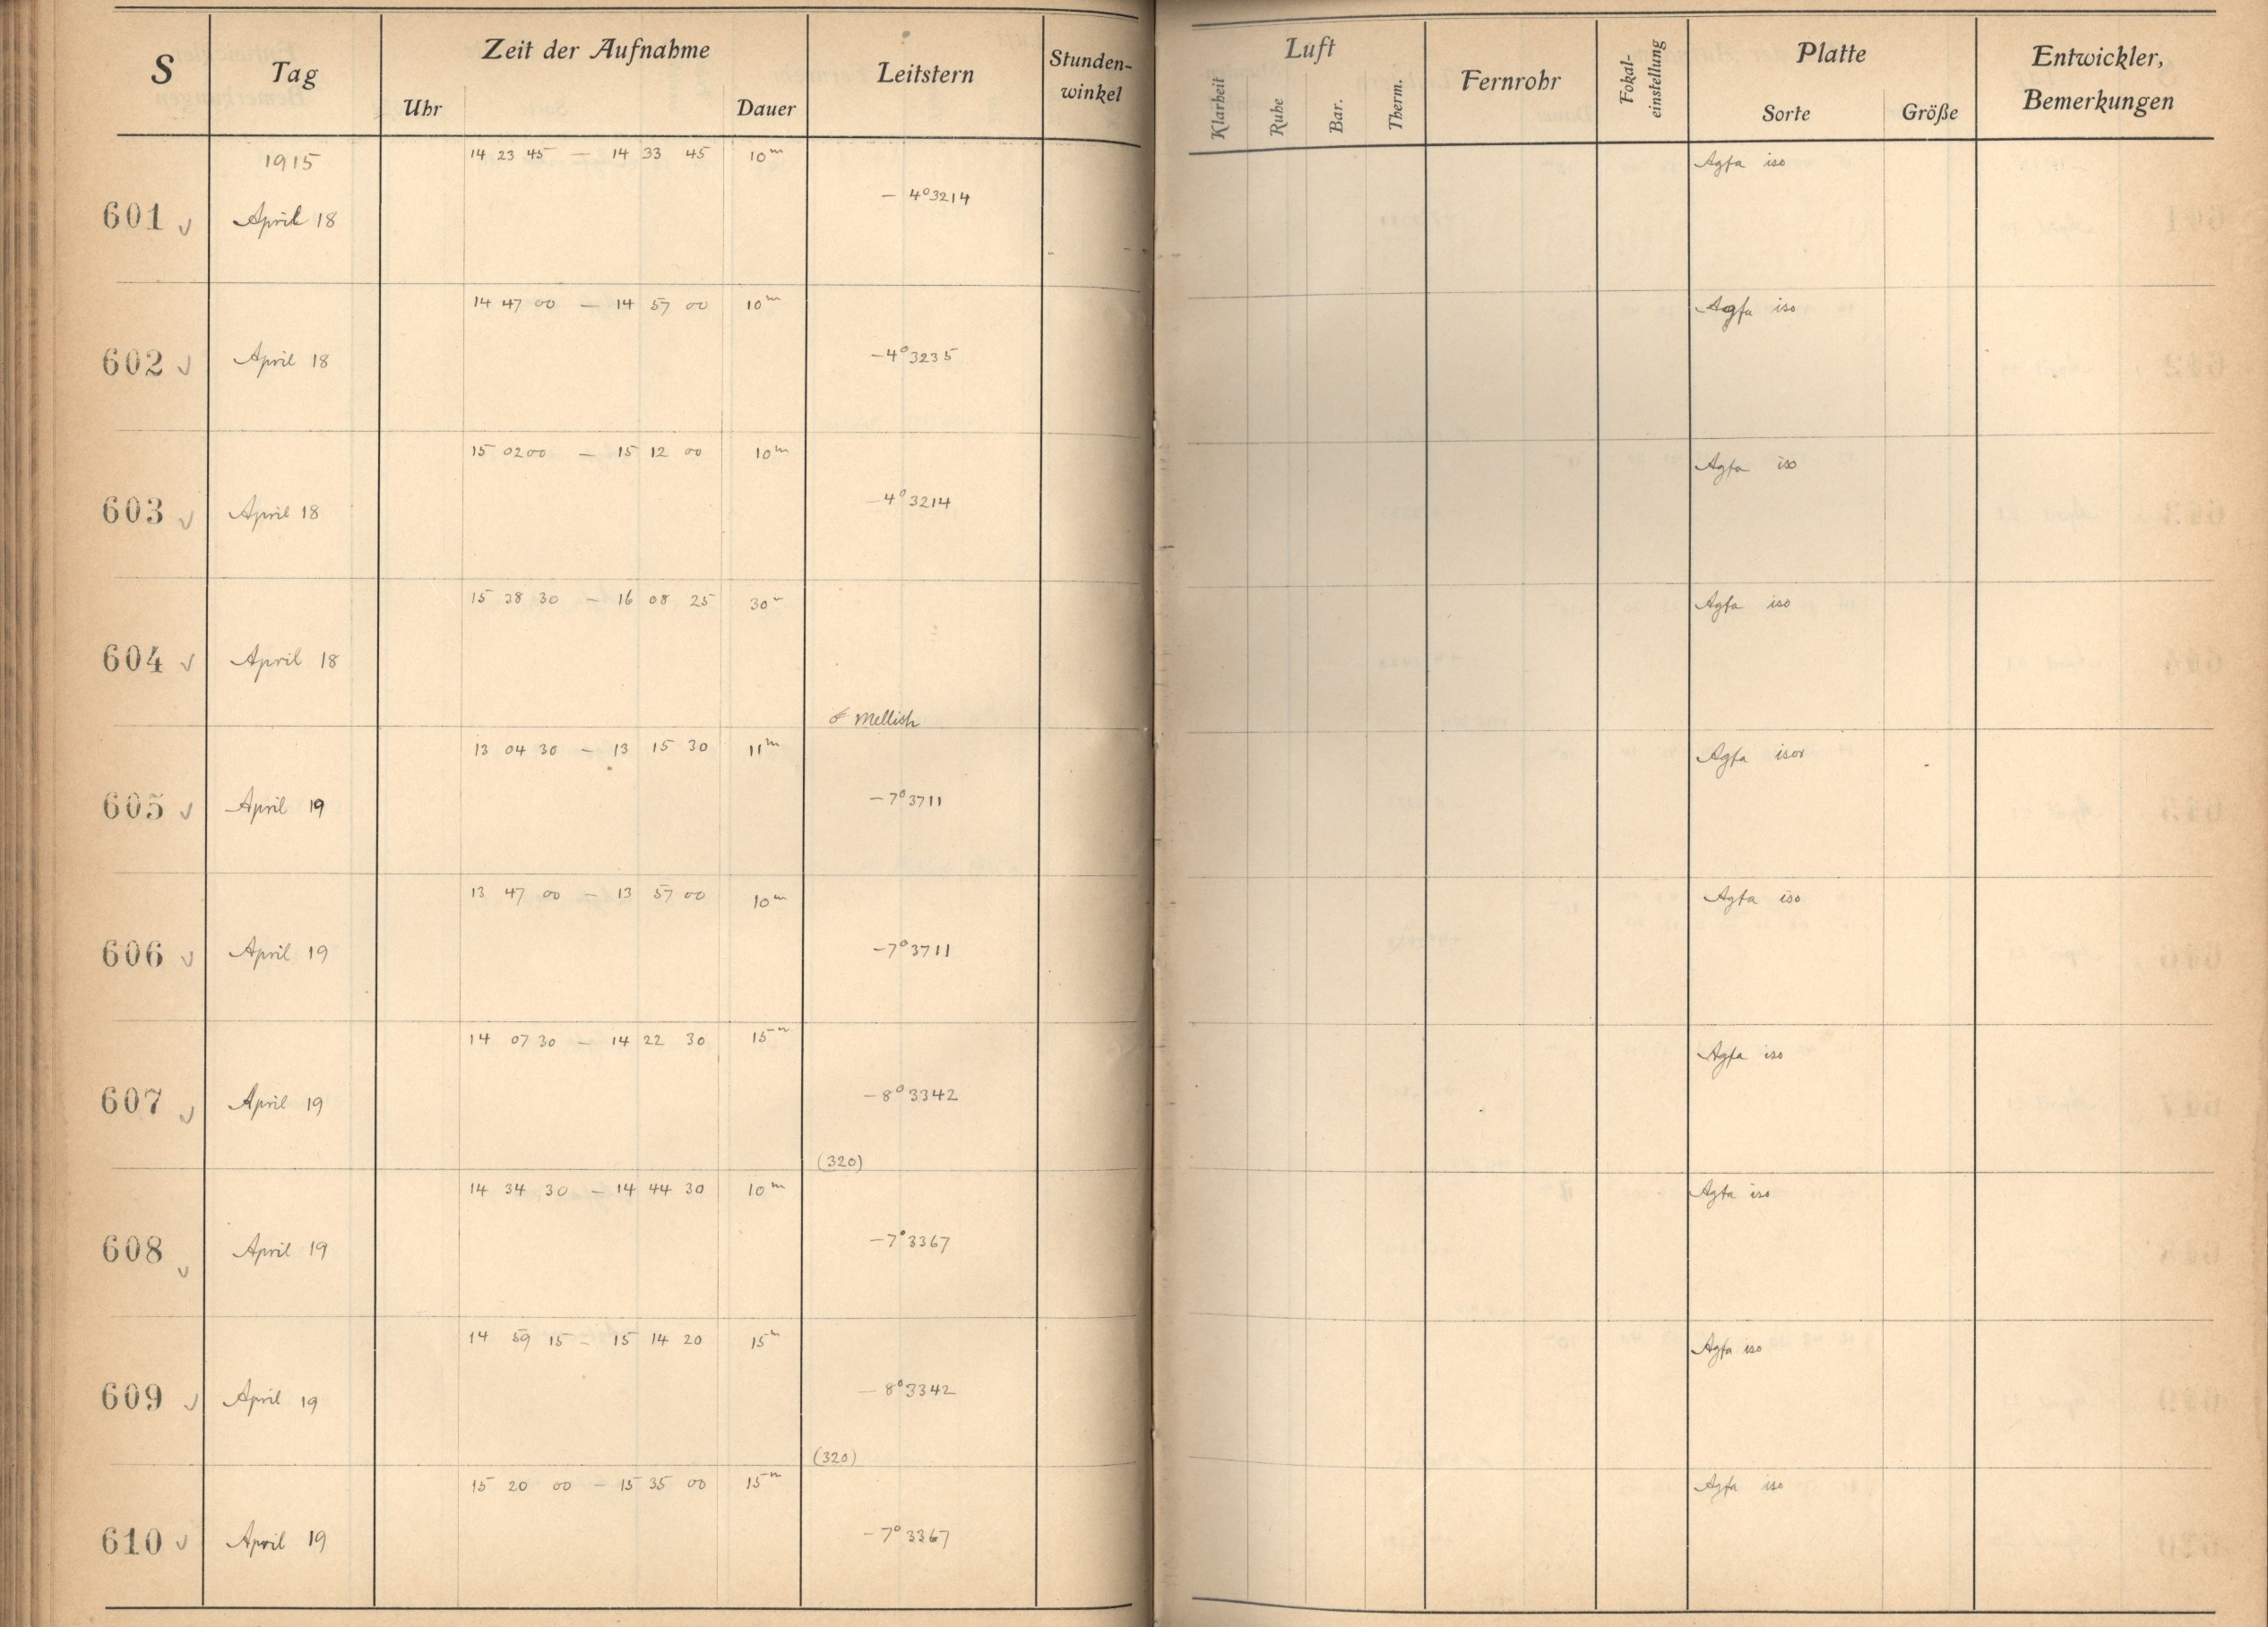 S Tag Zeit der Aufnahme Leitstern Stunden-winkel Luft Fernrohr Fokal-einstellung Platte Entwickler, Bemerkungen
Uhr Dauer Klarheit Ruhe Bar. Therm. Sorte Größe
1915 14 23 45 — 14 33 45 10m Agfa iso
601 April 18 — 4°3214
14 47 00 — 14 57 00 10m Agfa iso
602 April 18 —4°3235
15 02 00 — 15 12 00 10m Agfa iso
603 April 18 —4°3214
15 38 30 — 16 08 25 30m Agfa iso
604 April 18
Mellish
13 04 30 — 13 15 30 11m Agfa isor
605 April 19 —7°3711
13 47 00 — 13 57 00 10m Agfa iso
606 April 19 —7°3711
14 07 30 — 14 22 30 15m Agfa iso
607 April 19 —8°3342
(320)
14 34 30 — 14 44 30 10m Agfa iso
608 April 19 —7°3367
14 59 15 — 15 14 20 15m Agfa iso
609 April 19 — 8°3342
(320)
15 20 00 — 15 35 00 15m Agfa iso
610 April 19 —7°3367